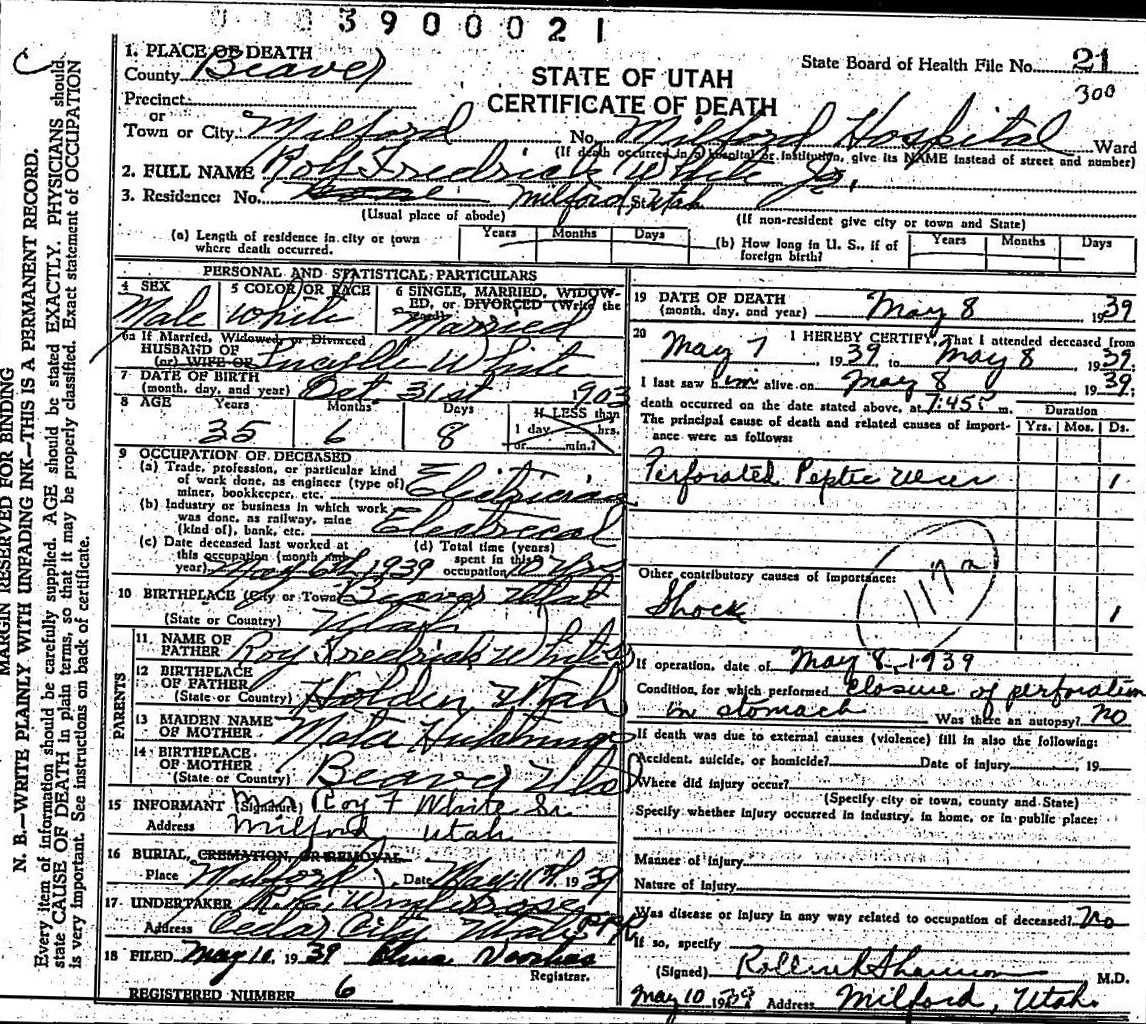 3900021
1. PLACE OF DEATH
County Beaver
State Board of Health File No. 21
300
STATE OF UTAH
CERTIFICATE OF DEATH
Precinct
or
Town or City Milford No. Milford Hospital Ward
(If death occurred in a hospital or institution, give its NAME instead of street and number)
2. FULL NAME Roy Fredrick White Jr.
3. Residence: No. Milford, St. Utah
(Usual place of abode) (If non-resident give city or town and State)
(a) Length of residence in city or town where death occurred. Years Months Days
(b) How long in U. S., if of foreign birth? Years Months Days
PERSONAL AND STATISTICAL PARTICULARS
4 SEX Male
5 COLOR OR RACE White
6 SINGLE, MARRIED, WIDOWED, or DIVORCED (Write the word) Married
6a If Married, Widowed, or Divorced
HUSBAND OF
(or) WIFE OF Lucylle White
7 DATE OF BIRTH
(month, day, and year) Oct. 31st 1903
8 AGE Years 35 Months 6 Days 8
If LESS than
1 day hrs.
or min.?
9 OCCUPATION OF DECEASED
(a) Trade, profession, or particular kind
of work done, as engineer (type of)
miner, bookkeeper, etc. Electrician
(b) Industry or business in which work
was done, as railway, mine
(kind of), bank, etc. Electrical
(c) Date deceased last worked at
this occupation (month and
year) May 6th 1939
(d) Total time (years)
spent in this
occupation 10 Yrs
10 BIRTHPLACE (City or Town) Beaver Utah
(State or Country) Utah
PARENTS
11. NAME OF
FATHER Roy Fredrick White Sr
12 BIRTHPLACE
OF FATHER
(State or Country) Holden, Utah
13 MAIDEN NAME
OF MOTHER
14 BIRTHPLACE
OF MOTHER
(State or Country) Beaver Utah
15 INFORMANT (Signature) Roy F White Sr.
Address Milford, Utah
16 BURIAL, CREMATION, OR REMOVAL
Place Milford Date May 11th 1939
17 UNDERTAKER
Address Cedar City Utah
18 FILED May 10, 1939
Registrar.
REGISTERED NUMBER 6
19 DATE OF DEATH
(month, day, and year) May 8 1939
20 I HEREBY CERTIFY, That I attended deceased from
May 7, 1939 to May 8 1939;
I last saw him alive on May 8 1939;
death occurred on the date stated above, at 7:45 m.
The principal cause of death and related causes of importance were as follows:
Duration
Yrs. Mos. Ds.
Perforated Peptic Ulcer 1
Other contributory causes of importance:
Shock 1
If operation, date of May 8, 1939
Condition for which performed closure of perforation
in stomach Was there an autopsy? no
If death was due to external causes (violence) fill in also the following:
Accident, suicide, or homicide? Date of injury , 19
Where did injury occur?
(Specify city or town, county and State)
Specify whether injury occurred in industry, in home, or in public place:
Manner of injury
Nature of injury
Was disease or injury in any way related to occupation of deceased? No
If so, specify
(Signed) M.D.
May 10 1939 Address Milford, Utah.
MARGIN RESERVED FOR BINDING
N. B.—WRITE PLAINLY WITH UNFADING INK—THIS IS A PERMANENT RECORD.
Every item of information should be carefully supplied. AGE should be stated EXACTLY. PHYSICIANS should
state CAUSE OF DEATH in plain terms, so that it may be properly classified. Exact statement of OCCUPATION
is very important. See instructions on back of certificate.